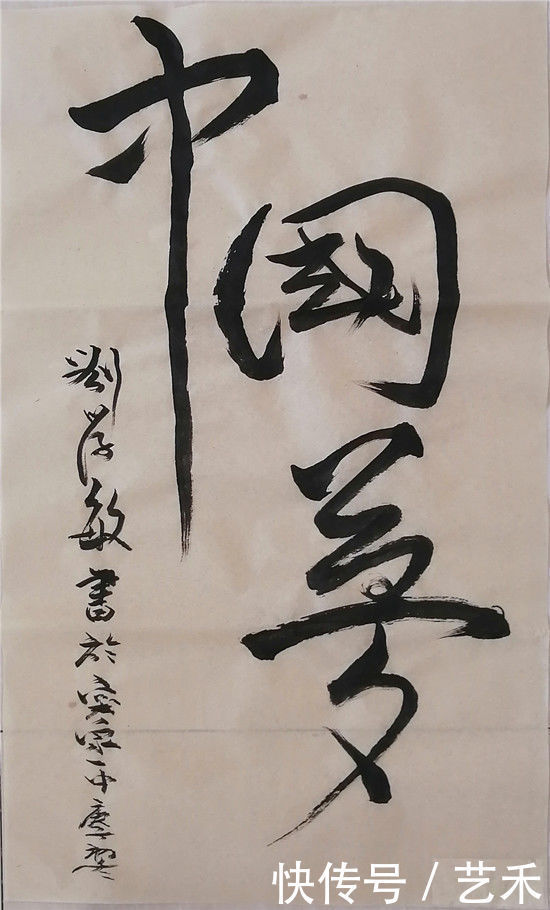 中國夢
劉 敏書於 一中
快传号 / 艺禾